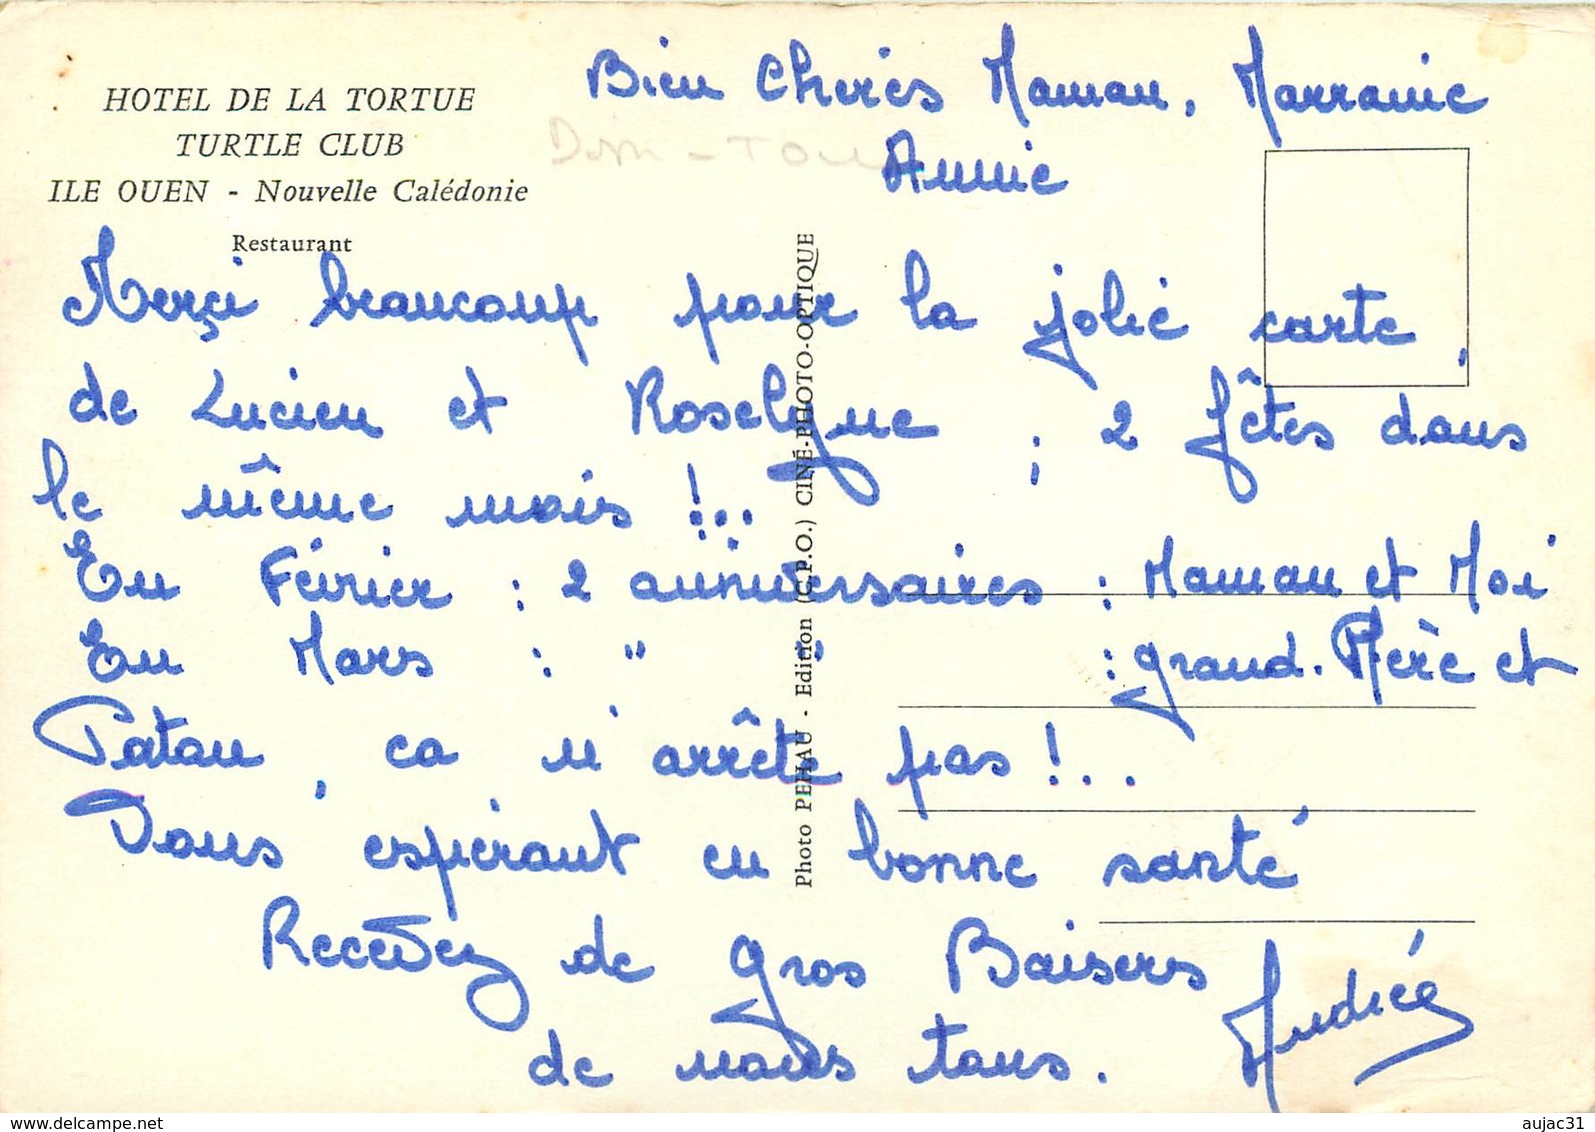 HOTEL DE LA TORTUE
TURTLE CLUB
ILE OUEN - Nouvelle Calédonie
Restaurant
Photo PEHAU - Edition (C.P.O.) CINÉ-PHOTO-OPTIQUE
Bien Chéries Maman, Marraine
Annie
Merçi beaucoup pour la jolie carte,
de Lucien et Roselyne ; 2 fêtes dans
le même mois !...
En Février : 2 anniversaires : Maman et Moi
En Mars : " " : grand-Mère et
Tatan, ca n'arrête pas !..
Vous espérant en bonne santé
Recevez de gros Baisers
de nous tous.
delcampe.net
aujac31